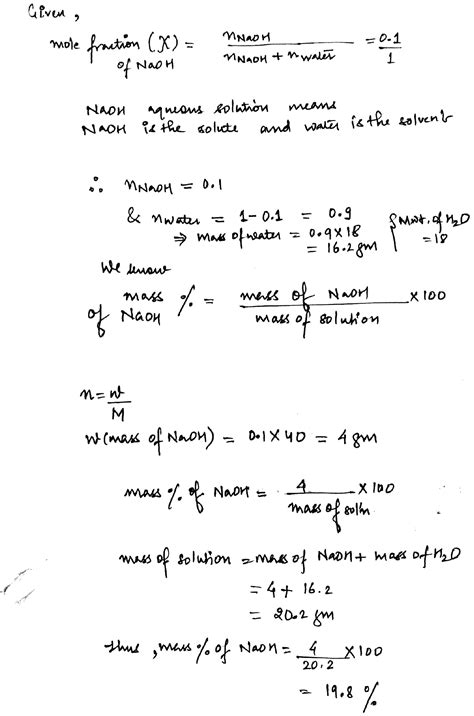 Given,
mole fraction (X) of NaOH = nNaOH / nNaOH + nwater = 0.1 / 1
NaOH aqueous solution means
NaOH is the solute and water is the solvent
∴ nNaOH = 0.1
& nwater = 1-0.1 = 0.9
⇒ mass of water = 0.9 x 18 { M.wt. of H2O = 18
= 16.2 gm
We know
mass % of NaOH = mass of NaOH / mass of solution x 100
n = w / M
w (mass of NaOH) = 0.1 x 40 = 4 gm
mass % of NaOH = 4 / mass of soln x 100
mass of solution = mass of NaOH + mass of H2O
= 4 + 16.2
= 20.2 gm
Thus, mass % of NaOH = 4 / 20.2 x 100
= 19.8 %